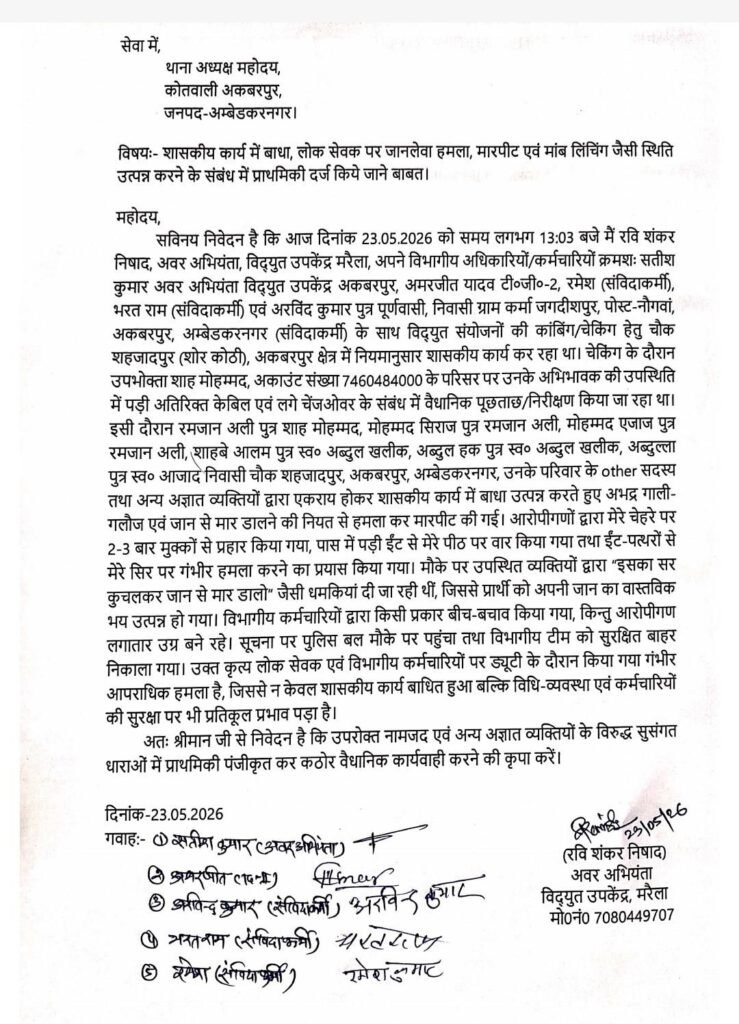 सेवा में,
थाना अध्यक्ष महोदय,
कोतवाली अकबरपुर,
जनपद-अम्बेडकरनगर।
विषयः- शासकीय कार्य में बाधा, लोक सेवक पर जानलेवा हमला, मारपीट एवं मांब लिंचिंग जैसी स्थिति
उत्पन्न करने के संबंध में प्राथमिकी दर्ज किये जाने बाबत।
महोदय,
सविनय निवेदन है कि आज दिनांक 23.05.2026 को समय लगभग 13:03 बजे मैं रवि शंकर
निषाद, अवर अभियंता, विद्युत उपकेंद्र मरैला, अपने विभागीय अधिकारियों/कर्मचारियों क्रमशः सतीश
कुमार अवर अभियंता विद्युत उपकेंद्र अकबरपुर, अमरजीत यादव टी०जी०-2, रमेश (संविदाकर्मी),
भरत राम (संविदाकर्मी) एवं अरविंद कुमार पुत्र पूर्णवासी, निवासी ग्राम कर्मा जगदीशपुर, पोस्ट-नौगवां,
अकबरपुर, अम्बेडकरनगर (संविदाकर्मी) के साथ विद्युत संयोजनों की कांबिंग/चेकिंग हेतु चौक
शहजादपुर (शोर कोठी), अकबरपुर क्षेत्र में नियमानुसार शासकीय कार्य कर रहा था। चेकिंग के दौरान
उपभोक्ता शाह मोहम्मद, अकाउंट संख्या 7460484000 के परिसर पर उनके अभिभावक की उपस्थिति
में पड़ी अतिरिक्त केबिल एवं लगे चेंजओवर के संबंध में वैधानिक पूछताछ/निरीक्षण किया जा रहा था।
इसी दौरान रमजान अली पुत्र शाह मोहम्मद, मोहम्मद सिराज पुत्र रमजान अली, मोहम्मद एजाज पुत्र
रमजान अली, शाहबे आलम पुत्र स्व० अब्दुल खलीक, अब्दुल हक पुत्र स्व० अब्दुल खलीक, अब्दुल्ला
पुत्र स्व० आजाद निवासी चौक शहजादपुर, अकबरपुर, अम्बेडकरनगर, उनके परिवार के other सदस्य
तथा अन्य अज्ञात व्यक्तियों द्वारा एकराय होकर शासकीय कार्य में बाधा उत्पन्न करते हुए अभद्र गाली-
गलौज एवं जान से मार डालने की नियत से हमला कर मारपीट की गई। आरोपीगणों द्वारा मेरे चेहरे पर
2-3 बार मुक्कों से प्रहार किया गया, पास में पड़ी ईंट से मेरे पीठ पर वार किया गया तथा ईंट-पत्थरों से
मेरे सिर पर गंभीर हमला करने का प्रयास किया गया। मौके पर उपस्थित व्यक्तियों द्वारा “इसका सर
कुचलकर जान से मार डालो” जैसी धमकियां दी जा रही थीं, जिससे प्रार्थी को अपनी जान का वास्तविक
भय उत्पन्न हो गया। विभागीय कर्मचारियों द्वारा किसी प्रकार बीच-बचाव किया गया, किन्तु आरोपीगण
लगातार उग्र बने रहे। सूचना पर पुलिस बल मौके पर पहुंचा तथा विभागीय टीम को सुरक्षित बाहर
निकाला गया। उक्त कृत्य लोक सेवक एवं विभागीय कर्मचारियों पर ड्यूटी के दौरान किया गया गंभीर
आपराधिक हमला है, जिससे न केवल शासकीय कार्य बाधित हुआ बल्कि विधि-व्यवस्था एवं कर्मचारियों
की सुरक्षा पर भी प्रतिकूल प्रभाव पड़ा है।
अतः श्रीमान जी से निवेदन है कि उपरोक्त नामजद एवं अन्य अज्ञात व्यक्तियों के विरुद्ध सुसंगत
धाराओं में प्राथमिकी पंजीकृत कर कठोर वैधानिक कार्यवाही करने की कृपा करें।
दिनांक-23.05.2026
गवाहः- ① सतीश कुमार (अवर अभियंता)
② अमरजीत
③ अरविन्द कुमार (संविदाकर्मी) अरविन्द कुमार
④ भरतराम (संविदाकर्मी) भरतराम
⑤ रमेश (संविदाकर्मी) रमेश कुमार
23/05/26
(रवि शंकर निषाद)
अवर अभियंता
विद्युत उपकेंद्र, मरैला
मो0नं0 7080449707